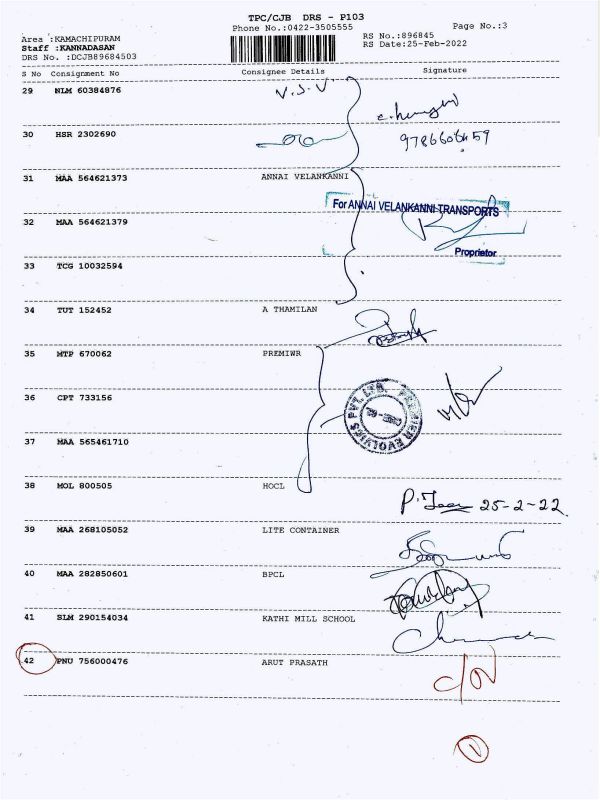 TPC/CJB DRS - P103
Phone No.:0422-3505555
Page No.:3
Area :KAMACHIPURAM
RS No.:896845
Staff :KANNADASAN
RS Date:25-Feb-2022
DRS No. :DCJB89684503
S No Consignment No Consignee Details Signature
29 NLM 60384876 V.S.V
30 HSR 2302690
31 MAA 564621373 ANNAI VELANKANNI
For ANNAI VELANKANNI TRANSPORTS
32 MAA 564621379
Proprietor
33 TCG 10032594
34 TUT 152452 A THAMILAN
35 MTP 670062 PREMIWR
36 CPT 733156
PREMIER EVOLVICS PVT. LTD.
37 MAA 565461710
38 MOL 800505 HOCL
25-2-22
39 MAA 268105052 LITE CONTAINER
40 MAA 282850601 BPCL
41 SLM 290154034 KATHI MILL SCHOOL
42 PNU 756000476 ARUT PRASATH